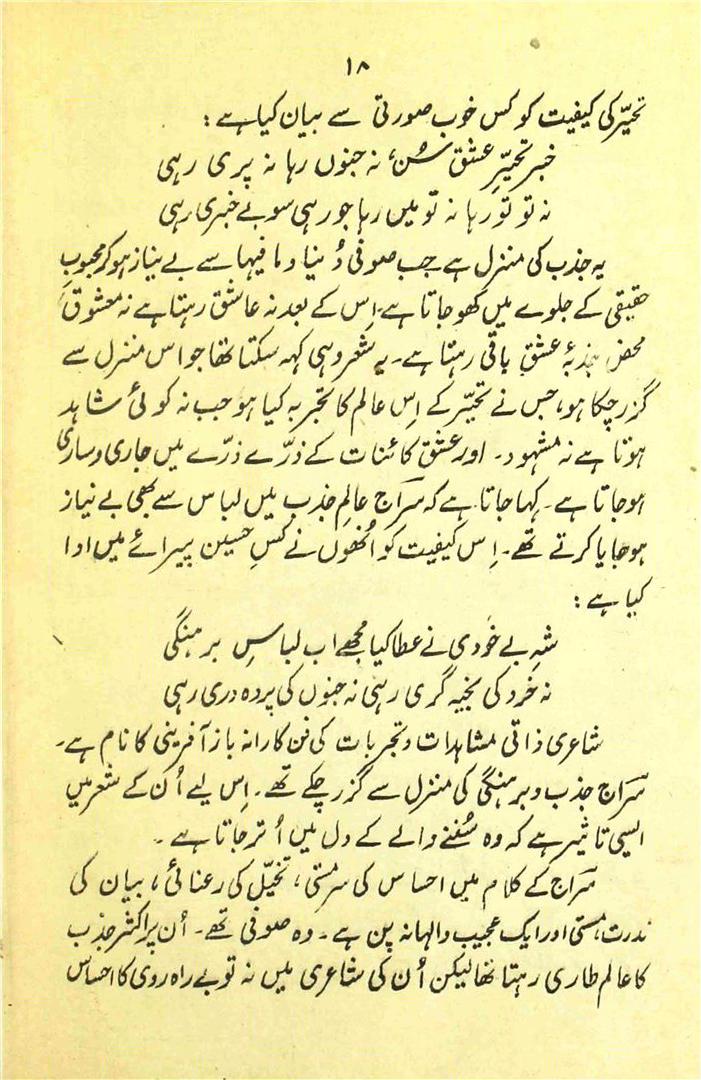 ۱۸
تحیّر کی کیفیت کو کس خوب صورتی سے بیان کیا ہے :
خبرِ تحیّرِ عشق سُن، نہ جنوں رہا نہ پری رہی
نہ تو تو رہا نہ تو میں رہا جو رہی سو بے خبری رہی
یہ جذب کی منزل ہے جب صوفی دُنیا و ما فیہا سے بے نیاز ہو کر محبوبِ
حقیقی کے جلوے میں کھو جاتا ہے۔ اِس کے بعد نہ عاشق رہتا ہے نہ معشوق،
محض جذبۂ عشق باقی رہتا ہے۔ یہ شعر وہی کہہ سکتا تھا جو اس منزل سے
گزر چکا ہو، جس نے تحیّر کے اِس عالم کا تجربہ کیا ہو جب نہ کوئی شاہد
ہوتا ہے نہ مشہود۔ اور عشق کائنات کے ذرّے ذرّے میں جاری و ساری
ہو جاتا ہے۔ کہا جاتا ہے کہ سراج عالمِ جذب میں لباس سے بھی بے نیاز
ہو جایا کرتے تھے۔ اِس کیفیت کو اُنھوں نے کس حسین پیرائے میں ادا
کیا ہے :
شہِ بے خودی نے عطا کیا مجھے اب لباسِ برہنگی
نہ خرد کی بخیہ گری رہی نہ جنوں کی پردہ دری رہی
شاعری ذاتی مشاہدات و تجربات کی فن کارانہ باز آفرینی کا نام ہے۔
سراج جذب و برہنگی کی منزل سے گزر چکے تھے۔ اِس لیے اُن کے شعر میں
ایسی تاثیر ہے کہ وہ سُننے والے کے دل میں اُتر جاتا ہے۔
سراج کے کلام میں احساس کی سرمستی، تخیّل کی رعنائی، بیان کی
ندرت، مستی اور ایک عجیب والہانہ پن ہے۔ وہ صوفی تھے۔ اُن پر اکثر جذب
کا عالم طاری رہتا تھا لیکن اُن کی شاعری میں نہ تو بے راہ روی کا احساس